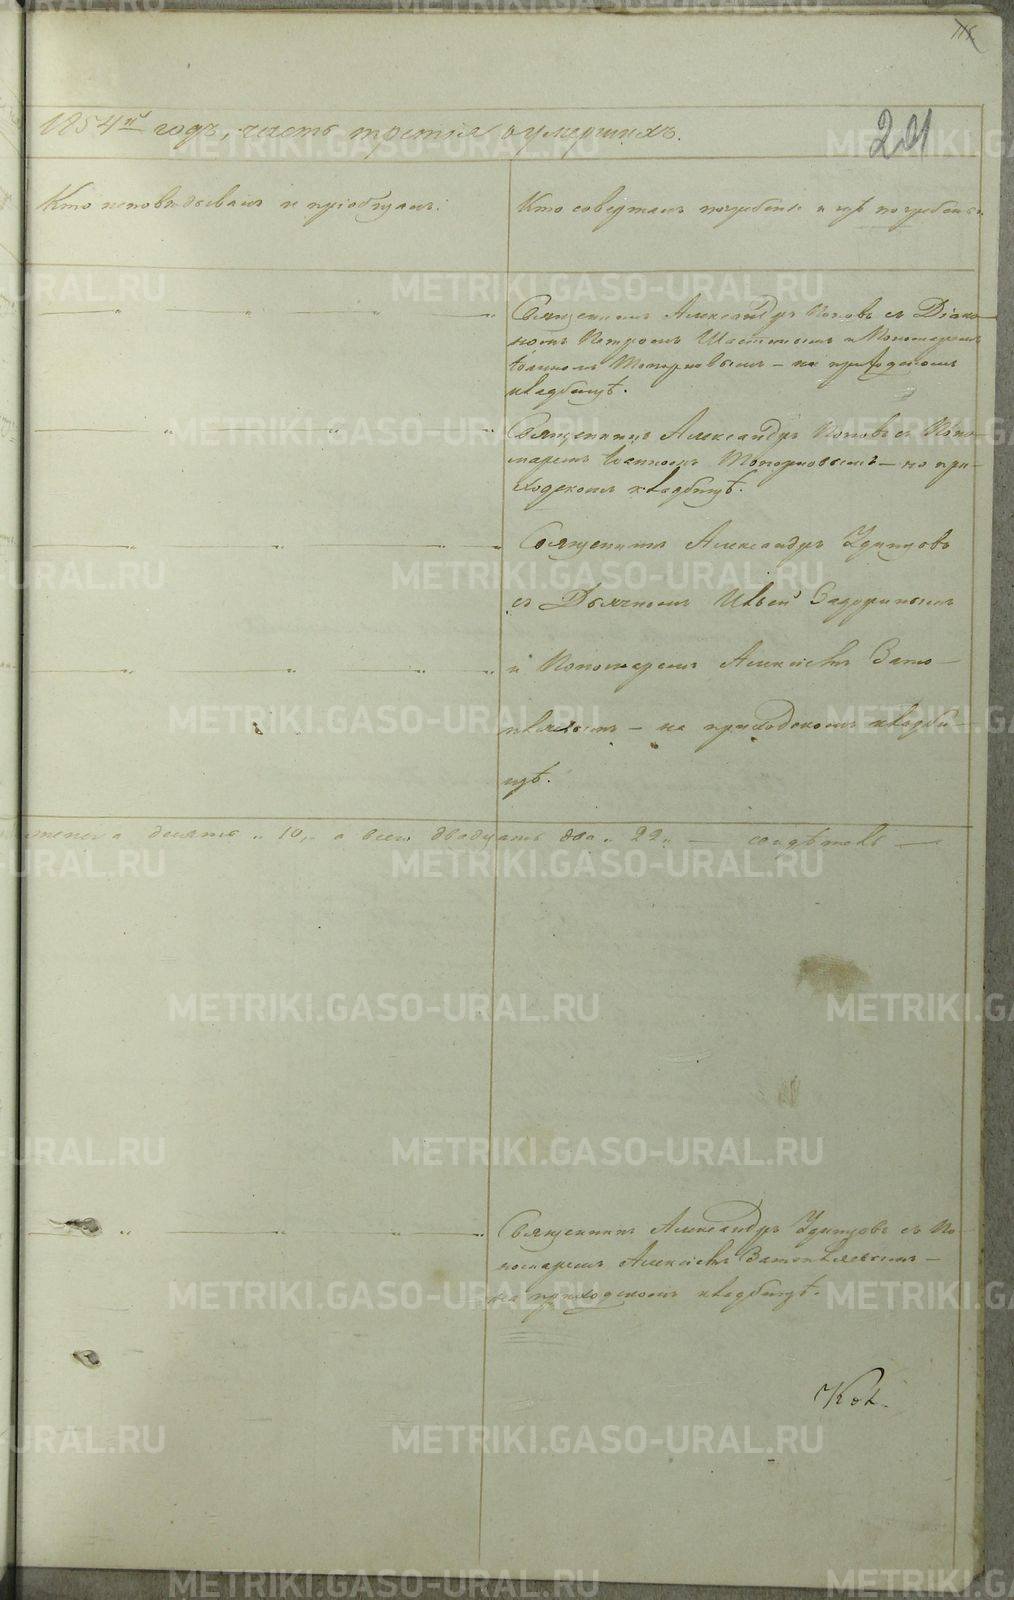 1854й годъ, часть третiя о умершихъ.
221
Кто исповѣдывалъ и прiобщалъ.
Кто совершалъ погребенiе и гдѣ погребены
Священникъ Александръ Поповъ съ Дiако-
номъ Петромъ и Пономаремъ
Іоанномъ Топорковымъ – на приходскомъ
кладбищѣ.
Священникъ Александръ Поповъ съ Поно-
маремъ Іоанномъ Топорковымъ – на при-
ходскомъ кладбищѣ.
Священникъ Александръ Удинцовъ
съ Дьячкомъ Ильей
и Пономаремъ Алексiемъ
– на приходскомъ кладби-
щѣ.
женска десять „10„ а всего двадцать два „22„ —
Священникъ Александръ Удинцовъ съ По-
номаремъ Алексiемъ –
на приходскомъ кладбищѣ.
METRIKI.GASO-URAL.RU